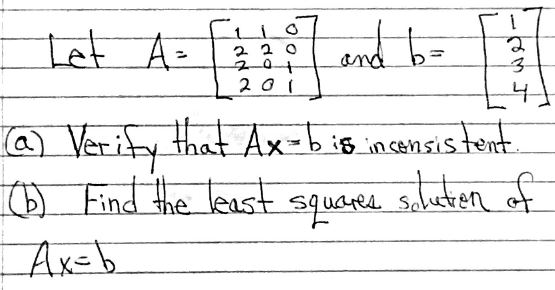 Let A = [1 1 0; 2 2 0; 2 0 1; 2 0 1] and b = [1; 2; 3; 4]
(a) Verify that Ax=b is inconsistent.
(b) Find the least squares solution of
Ax=b